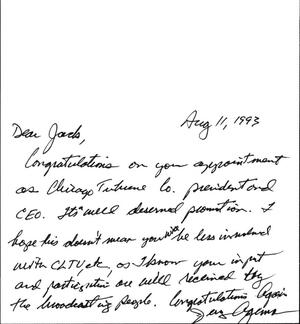 Aug 11, 1993
Dear Jack,
Congratulations on your appointment
as Chicago Tribune Co. president and
CEO. It's well deserved promotion. I
hope his doesn't mean you will be less involved
with CLTV, etc, as I know your input
and perspective are well received by
the broadcasting people. Congratulations Again